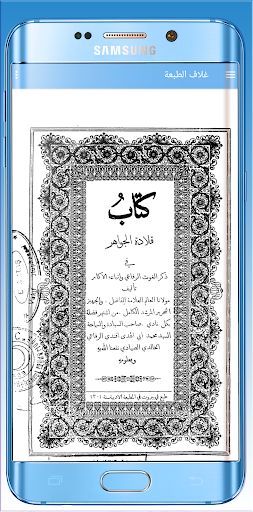 SAMSUNG
غلاف الطبعة
كتاب
قلادة الجواهر
في
ذكر الغوث الرفاعي واتباعه الاكابر
تأليف
مولانا العالم العلامة الفاضل
المرشد الكامل من اشتهر فضله
بكل نادي صاحب السيادة والسماحة
السيد محمد ابي الهدى افندي الرفاعي
الخالدي الصيادي نفعنا الله به
وبعلومه
طبع في بيروت في المطبعة الادبية سنة ١٣٠١